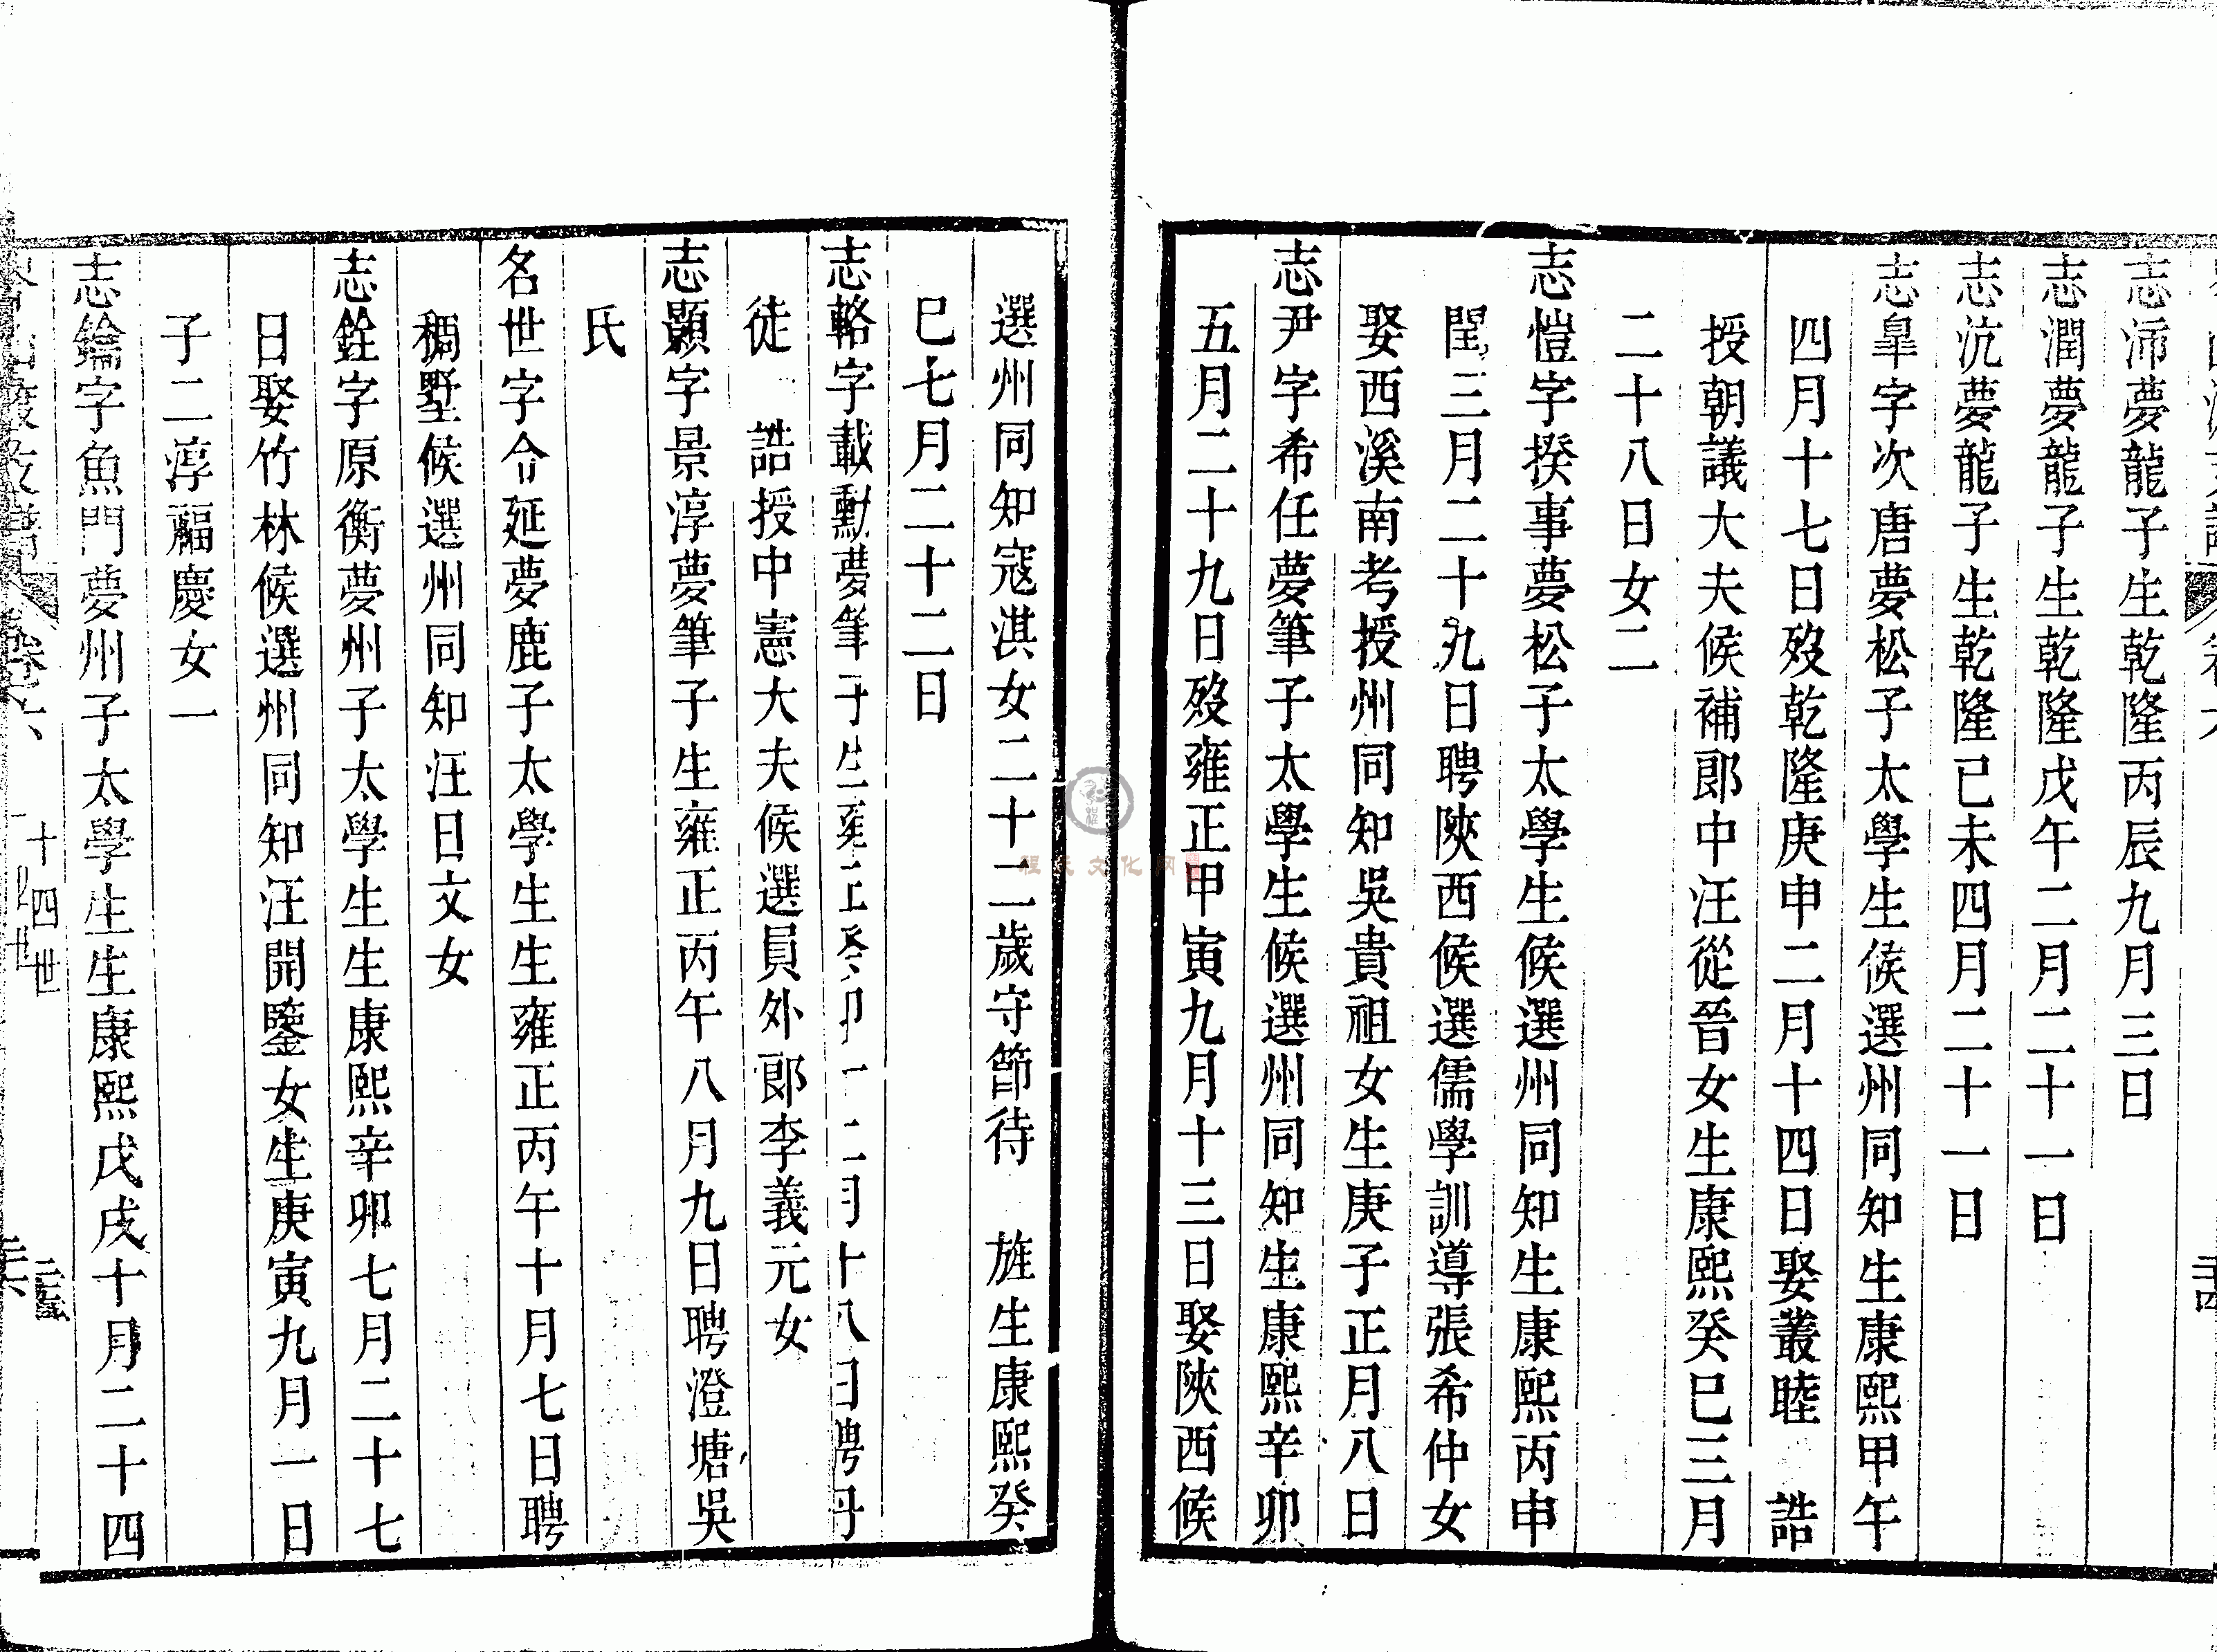 志沛夢龍子生乾隆丙辰九月三日
志潤夢龍子生乾隆戊午二月二十一日
志沆夢龍子生乾隆己未四月二十一日
志皐字次唐夢松子太學生候選州同知生康熙甲午
四月十七日歿乾隆庚申二月十四日娶叢睦 誥
授朝議大夫候補郎中汪從晉女生康熙癸巳三月
二十八日女二
志愷字揆事夢松子太學生候選州同知生康熙丙申
閏三月二十九日聘陝西候選儒學訓導張希仲女
娶西溪南考授州同知吳貴祖女生庚子正月八日
志尹字希任夢筆子太學生候選州同知生康熙辛卯
五月二十九日歿雍正甲寅九月十三日娶陝西候
選州同知寇淇女二十二歲守節待 旌生康熙癸
巳七月二十二日
志輅字載勳夢筆子生雍正癸卯十二月十八日聘丹
徒 誥授中憲大夫候選員外郎李義元女
志顥字景淳夢筆子生雍正丙午八月九日聘澄塘吳
氏
名世字令延夢鹿子太學生生雍正丙午十月七日聘
稠墅候選州同知汪日文女
志銓字原衡夢州子太學生生康熙辛卯七月二十七
日娶竹林候選州同知汪開鑒女生庚寅九月一日
子二淳福慶女一
志錀字魚門夢州子太學生生康熙戊戌十月二十四
卷六 十四世